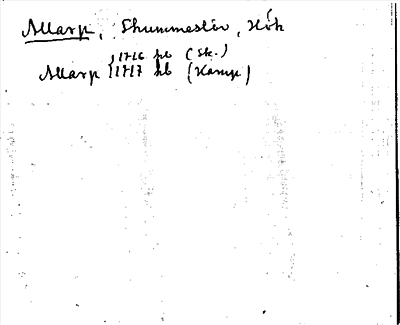 Allarp, Skummeslöv, Hök
Allarp { 1716 jb (Sk.)
1717 kb (Kamp)